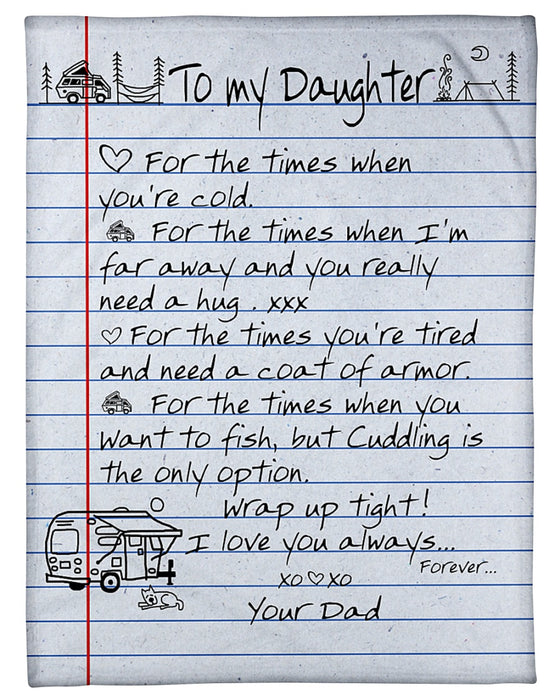 To my Daughter
♡ For the times when
you're cold.
For the times when I'm
far away and you really
need a hug . xxx
♡ For the times you're tired
and need a coat of armor.
For the times when you
want to fish, but Cuddling is
the only option.
Wrap up tight!
I love you always...
Forever...
xo ♡ xo
Your Dad